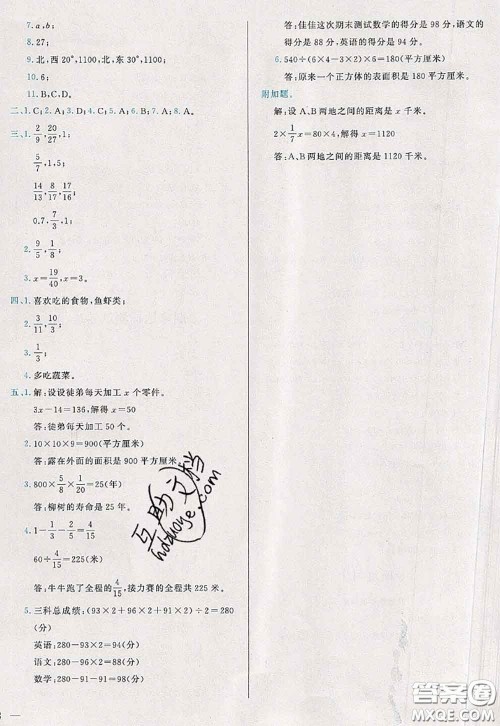 7. a,b;
8. 27;
9. 北,西20°,1100,北,东30°,1100;
10. 6;
11. B,C,D。
二、1. C;2. A;3. D;4. C;5. A;6. B;7. A;8. A。
三、1. 2/9,20/27,1;
5/7,1,5;
14/13,8/17,9/17;
0.7,7/3,1;
2. 9/5,1/8;
3. x=19/40,x=3。
四、1. 喜欢吃的食物,鱼虾类;
2. 3/11,3/10;
3. 1/3;
4. 多吃蔬菜。
五、1. 解:设设徒弟每天加工x个零件。
3x-14=136,解得x=50
答:徒弟每天加工50个。
2. 10×10×9=900(平方厘米)
答:露在外面的面积是900平方厘米。
3. 800×5/32×1/5=25(年)
答:柳树的寿命是25年。
4. 1-1/3-2/5=4/15
60÷4/15=225(米)
答:牛牛跑了全程的4/15,接力赛的全程共225米。
5. 三科总成绩:(93×2+96×2+91×2)÷2=280
(分)
英语:280-93×2=94(分)
语文:280-96×2=88(分)
数学:280-91-91=98(分)
答:佳佳这次期末测试数学的得分是98分,语文的
得分是88分,英语的得分是94分。
6. 540÷(6×4-3×2)×6=180(平方厘米)
答:原来一个正方体的表面积是180平方厘米。
附加题。
解:设A、B两地之间的距离是x千米。
2×1/7x=80×4,解得x=1120
答:A、B两地之间的距离是1120千米。
互助文档
hdzuoye.com
答案圈
MXQE.COM